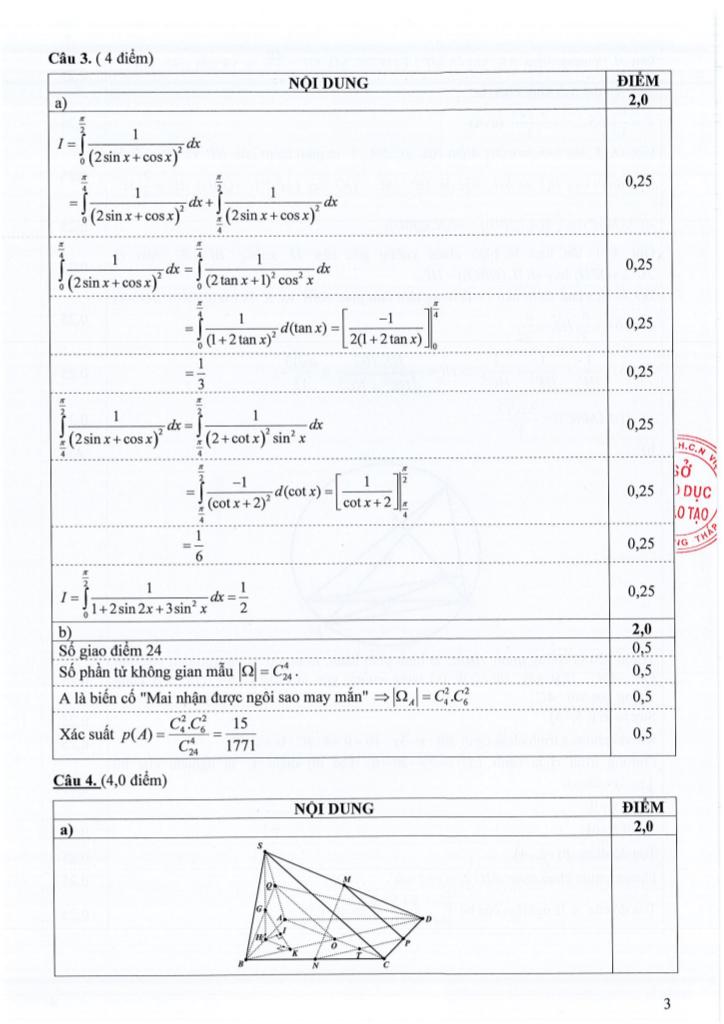 Câu 3. ( 4 điểm)
NỘI DUNG ĐIỂM
a) 2,0
I = ∫_0^{π/2} 1/(2sin x + cos x)^2 dx
= ∫_0^{π/4} 1/(2sin x + cos x)^2 dx + ∫_{π/4}^{π/2} 1/(2sin x + cos x)^2 dx 0,25
∫_0^{π/4} 1/(2sin x + cos x)^2 dx = ∫_0^{π/4} 1/((2tan x + 1)^2 cos^2 x) dx 0,25
= ∫_0^{π/4} 1/(1 + 2tan x)^2 d(tan x) = [-1/(2(1 + 2tan x))]|_0^{π/4} 0,25
= 1/3 0,25
∫_{π/4}^{π/2} 1/(2sin x + cos x)^2 dx = ∫_{π/4}^{π/2} 1/((2 + cot x)^2 sin^2 x) dx 0,25
= ∫_{π/4}^{π/2} -1/(cot x + 2)^2 d(cot x) = [1/(cot x + 2)]|_{π/4}^{π/2} 0,25
= 1/6 0,25
I = ∫_0^{π/2} 1/(1 + 2sin 2x + 3sin^2 x) dx = 1/2 0,25
b) 2,0
Số giao điểm 24 0,5
Số phần tử không gian mẫu |Ω| = C_{24}^4 . 0,5
A là biến cố "Mai nhận được ngôi sao may mắn" ⇒ |Ω_A| = C_4^2.C_6^2 0,5
Xác suất p(A) = C_4^2.C_6^2/C_{24}^4 = 15/1771 0,5
Câu 4. (4,0 điểm)
NỘI DUNG ĐIỂM
a) 2,0
S
M
Q
G
A
D
I
H
O
P
K
T
B
N
C
H.C.N
SỞ
DỤC
TẠO
THÁP
3